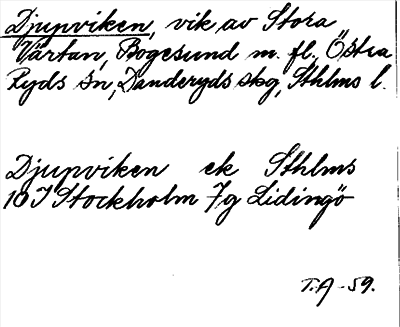 Djupviken, vik av Stora
Värtan, Bogesund m. fl. Östra
Ryds sn, Danderyds skg, Sthlms l.
Djupviken ek Sthlms
10 I Stockholm 7g Lidingö
T.A -59.